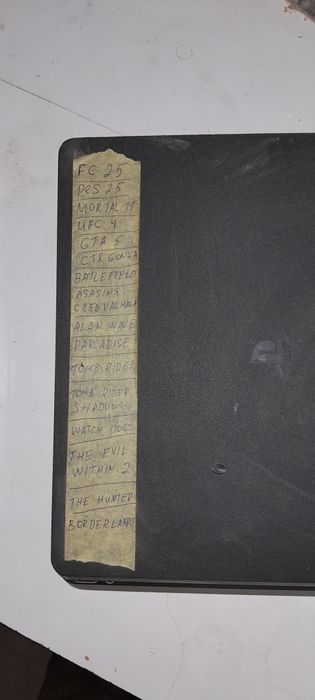 FC 25
PES 25
MORTAL 11
UFC 4
GTA 5
CTR
BATLEFIELD
ASASINS
CRED VALHALA
ALAN WAKE
PARADISE
TOMB RIDER
TOMB RIDER
SHADOW
WATCH DOGS
THE EVIL
WITHIN 2
THE HUNTER
BORDERLANDS